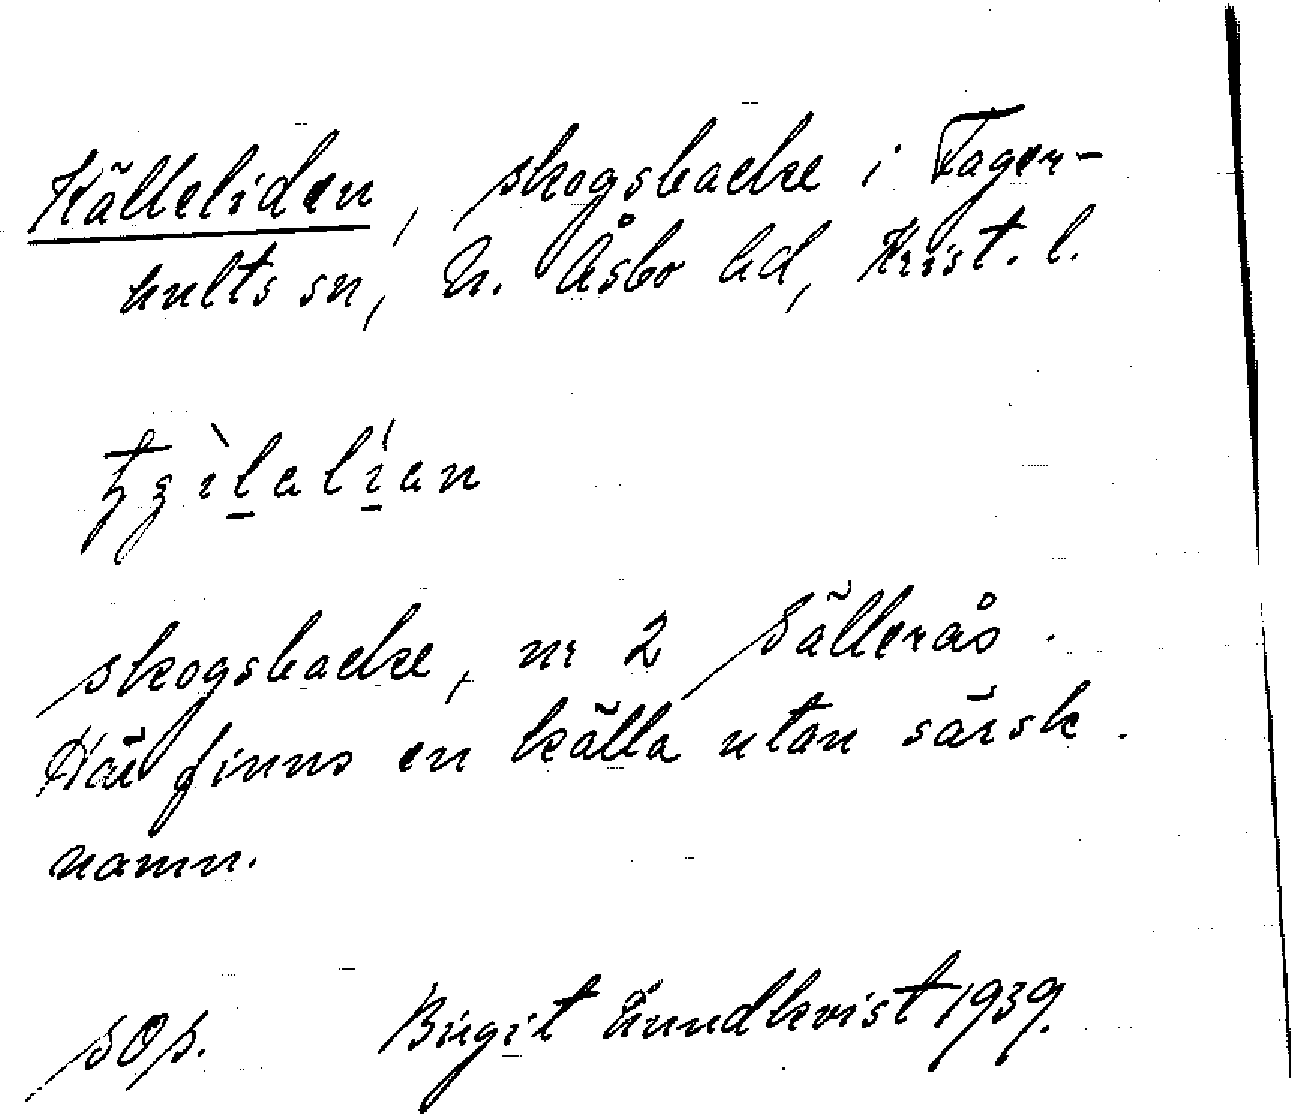 Källeliden, skogsbacke i Fager-
hults sn, N. Åsbo hd, Krist. l.
skogsbacke, nr 2 Sällerås.
Här finns en källa utan särsk.
namn.
SOS. Birgit Lundkvist 1939.